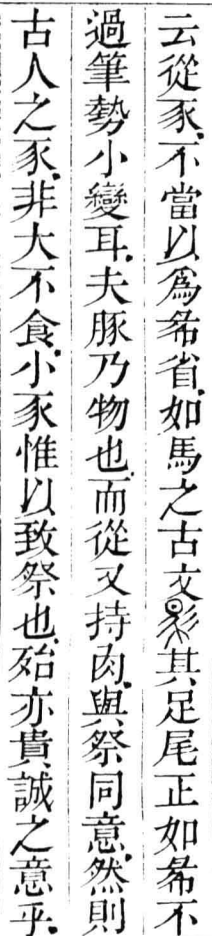 云從豕不當以爲㣇省如馬之古文𢒠其足尾正如㣇不
過筆勢小變耳夫豚乃物也而從又持肉與祭同意然則
古人之豕非大不食小豕惟以致祭也殆亦貴誠之意乎